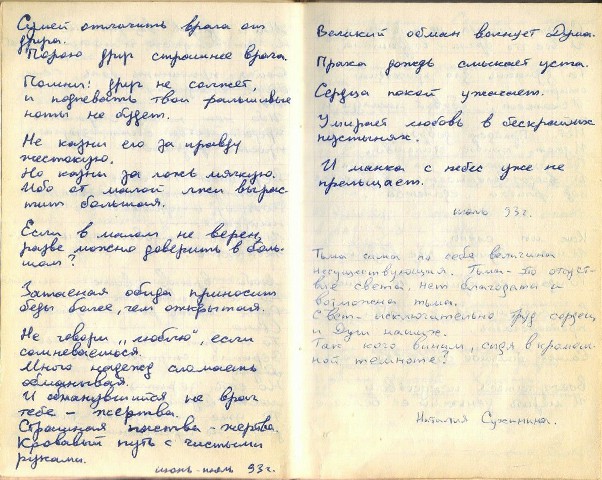 Сумей отличить врага от
друга.
Порою друг страшнее врага.
Помни: друг не солжет,
и подпевать твои фальшивые
ноты не будет.
Не казни его за правду
жестокую.
Но казни за ложь мягкую.
Ибо от малой лжи вырас-
тит большая.
Если в малом не верен,
разве можно доверить в боль-
шом?
Затаеная обида приносит
беды более, чем открытая.
Не говори „люблю", если
сомневаешься.
Много надежд сломаешь
обманывая.
И обманувшийся не враг
тебе - жертва.
Страшная - жертва.
Кровавый путь с чистыми
руками.
июнь-июль 93г.
Великий обман волнует Душа.
Праха дождь смыкает уста.
Сердца покой ужасает.
Умирает любовь в бескрайних
пустынях.
И манка с небес уже не
прельщает.
июль 93г.
Тьма сама по себе величина
несуществующая. Тьма - это отсутст-
вие света, нет благодати и
возможна тьма.
Свет - исключительно труд сердец
и Душ наших.
Так кого виним, сидя в кромеш-
ной темноте?
Наталия Сухинина.